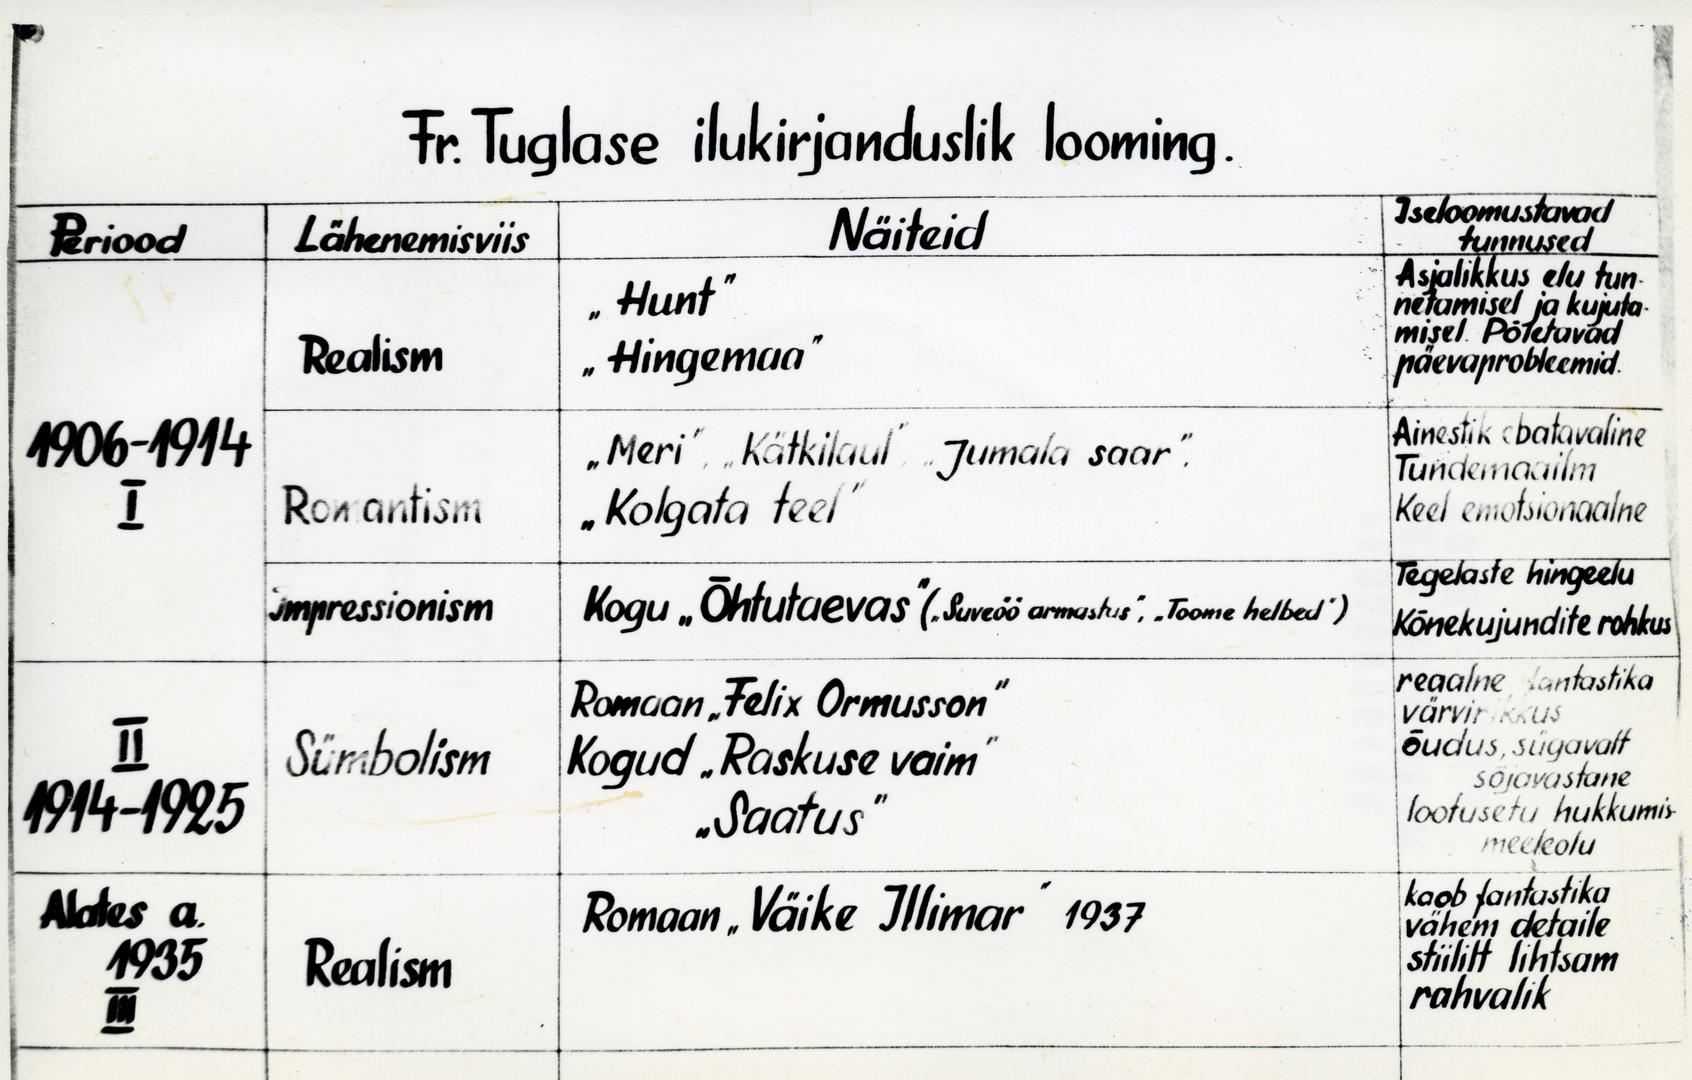 Fr. Tuglase ilukirjanduslik looming.
Periood Lähenemisviis Näiteid Iseloomustavad
tunnused
1906-1914
I
Realism
„Hunt”
„Hingemaa”
Asjalikkus elu tun-
netamisel ja kujuta-
misel. Põletavad
päevaprobleemid.
Romantism
„Meri”, „Kätkilaul”, „Jumala saar”,
„Kolgata teel”
Ainestik ebatavaline
Tundemaailm
Keel emotsionaalne
impressionism
Kogu „Õhtutaevas” („Suveöö armastus”, „Toome helbed”)
Tegelaste hingeelu
Kõnekujundite rohkus
II
1914-1925
Sümbolism
Romaan „Felix Ormusson”
Kogud „Raskuse vaim”
„Saatus”
reaalne, fantastika
värvirikkus
õudus, sügavalt
sõjavastane
lootusetu hukkumis-
meeleolu
Alates a.
1935
III
Realism
Romaan „Väike Illimar” 1937
kaob fantastika
vähem detaile
stiililt lihtsam
rahvalik